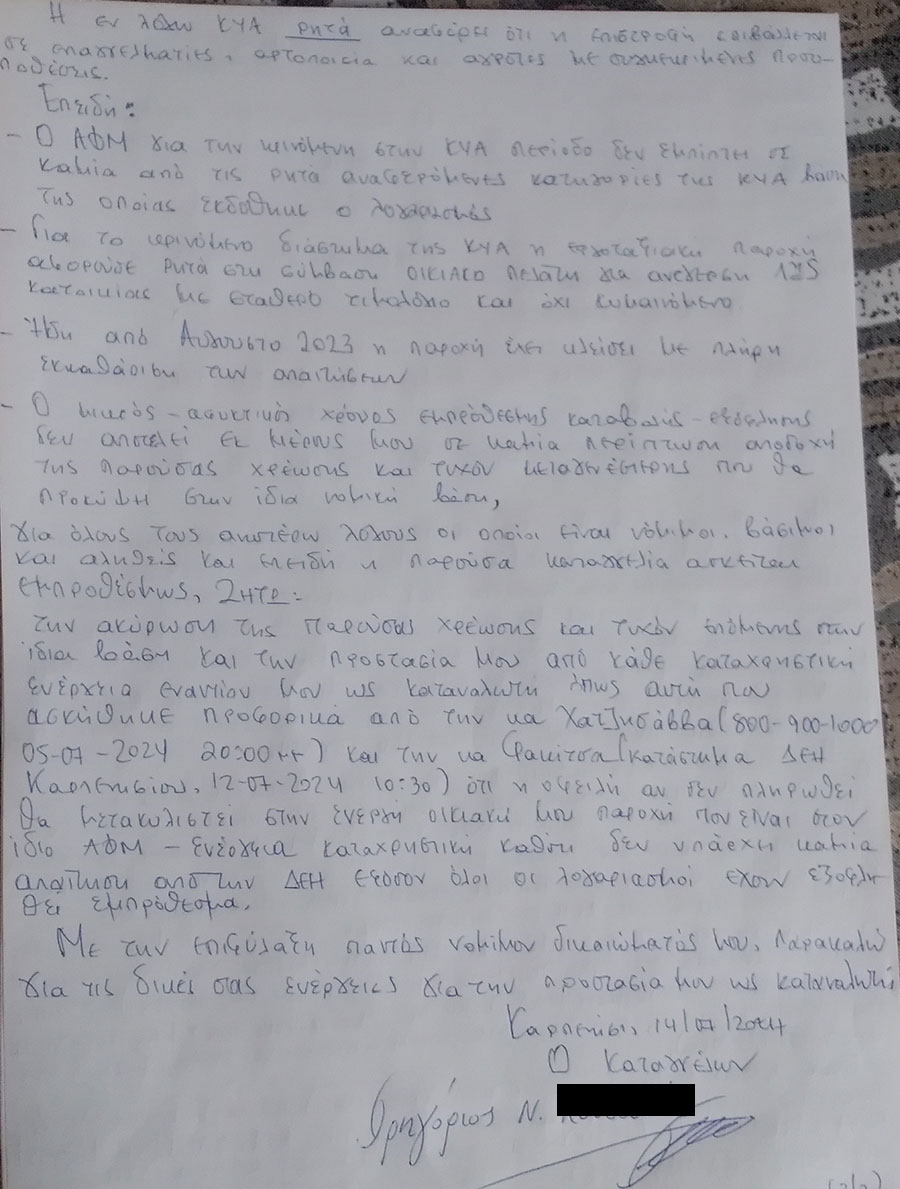 Η εν λόγω ΚΥΑ ρητά αναφέρει ότι η επιστροφή επιβάλλεται
σε επαγγελματίες, αρτοποιεία και αγρότες με συγκεκριμένες προϋ-
ποθέσεις.
Επειδή:
- Ο ΑΦΜ για την κρινόμενη στην ΚΥΑ περίοδο δεν εμπίπτει σε
καμία από τις ρητά αναφερόμενες κατηγορίες της ΚΥΑ βάση
της οποίας εκδόθηκε ο λογαριασμός
- Για το κρινόμενο διάστημα της ΚΥΑ η εργοταξιακή παροχή
αφορούσε ρητά στη σύμβαση ΟΙΚΙΑΚΟ πελάτη για ανέγερση
κατοικίας με σταθερό τιμολόγιο και όχι κυμαινόμενο
- Ήδη από Αύγουστο 2023 η παροχή έχει κλείσει με πλήρη
εκκαθάριση των απαιτήσεων
- Ο μικρός - ασφυκτικός χρόνος εμπρόθεσμης καταβολής - εξόφλησης
δεν αποτελεί εκ μέρους μου σε καμία περίπτωση αποδοχή
της παρούσας χρέωσης και τυχόν μεταγενέστερης που θα
προκύψη στην ίδια νομική βάση,
για όλους τους ανωτέρω λόγους οι οποίοι είναι νόμιμοι, βάσιμοι
και αληθείς και επειδή η παρούσα καταγγελία ασκείται
εμπροθέσμως, Ζητώ:
την ακύρωση της παρούσας χρέωσης και τυχόν επόμενης στην
ίδια βάση και την προστασία μου από κάθε καταχρηστική
ενέργεια εναντίον μου ως καταναλωτή όπως αυτή που
ασκήθηκε προφορικά από την κα Χατζησάββα (800-900-1000
05-07-2024 20:00μμ) και την κα Φακίτσα (κατάστημα ΔΕΗ
Καρπενησίου, 12-07-2024 10:30) ότι η οφειλή αν δεν πληρωθεί
θα μετακυλιστεί στην ενεργή οικιακή μου παροχή που είναι στον
ίδιο ΑΦΜ - Ενέργεια καταχρηστική καθότι δεν υπάρχη καμία
απαίτηση από την ΔΕΗ εφόσον όλοι οι λογαριασμοί έχουν εξοφλη
θεί εμπρόθεσμα.
Με την επιφύλαξη παντός νομίμου δικαιώματός μου, παρακαλώ
για τις δικές σας ενέργειες για την προστασία μου ως καταναλωτή
Καρπενήσι, 14/07/2024
Ο Καταγγέλων
Γρηγόριος Ν.
(2/2)